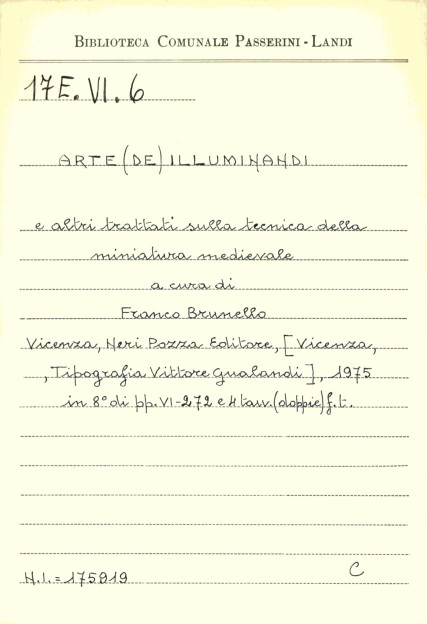 BIBLIOTECA COMUNALE PASSERINI - LANDI
17E.VI.6
ARTE (DE) ILLUMINANDI
e altri trattati sulla tecnica della
miniatura medievale
a cura di
Franco Brunello
Vicenza, Neri Pozza Editore, [Vicenza,
, Tipografia Vittore Gualandi], 1975
in 8° di pp. VI-272 e 4 tavv. (doppie) f.t.
N.I. = 175919
C